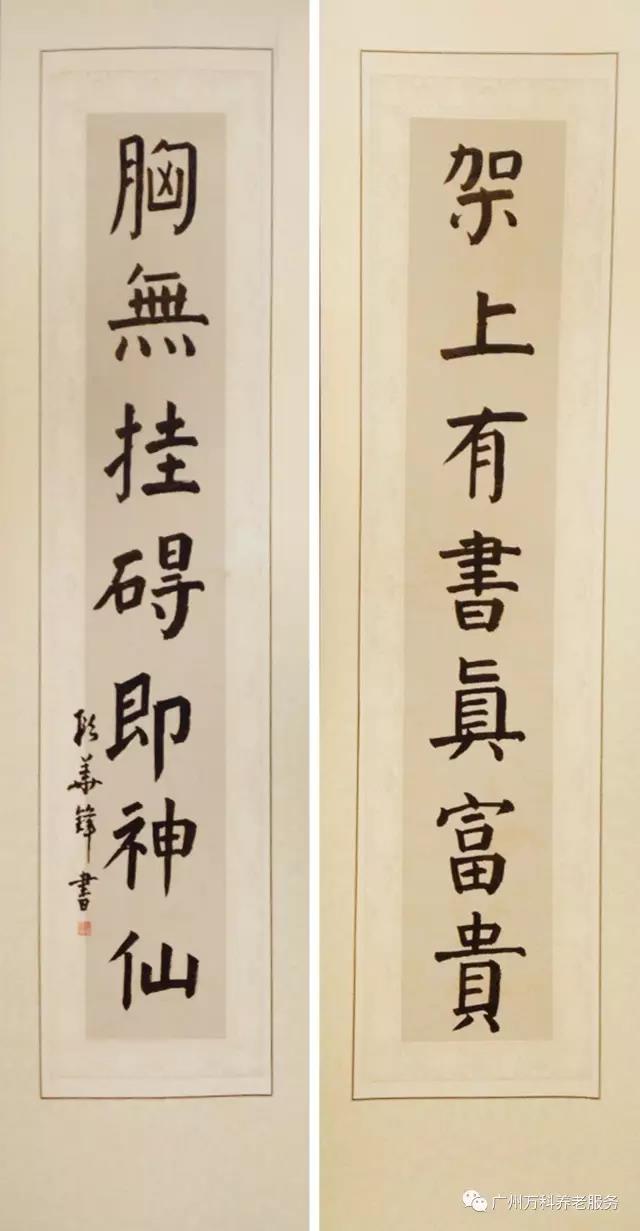 架上有書眞富貴
胸無挂碍即神仙
華鋒書
广州万科养老服务